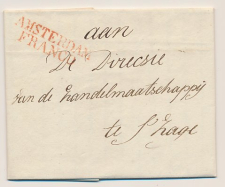 AMSTERDAM
FRANCO
aan
De Direcsie
van de handelmaatschappij
te s'hage